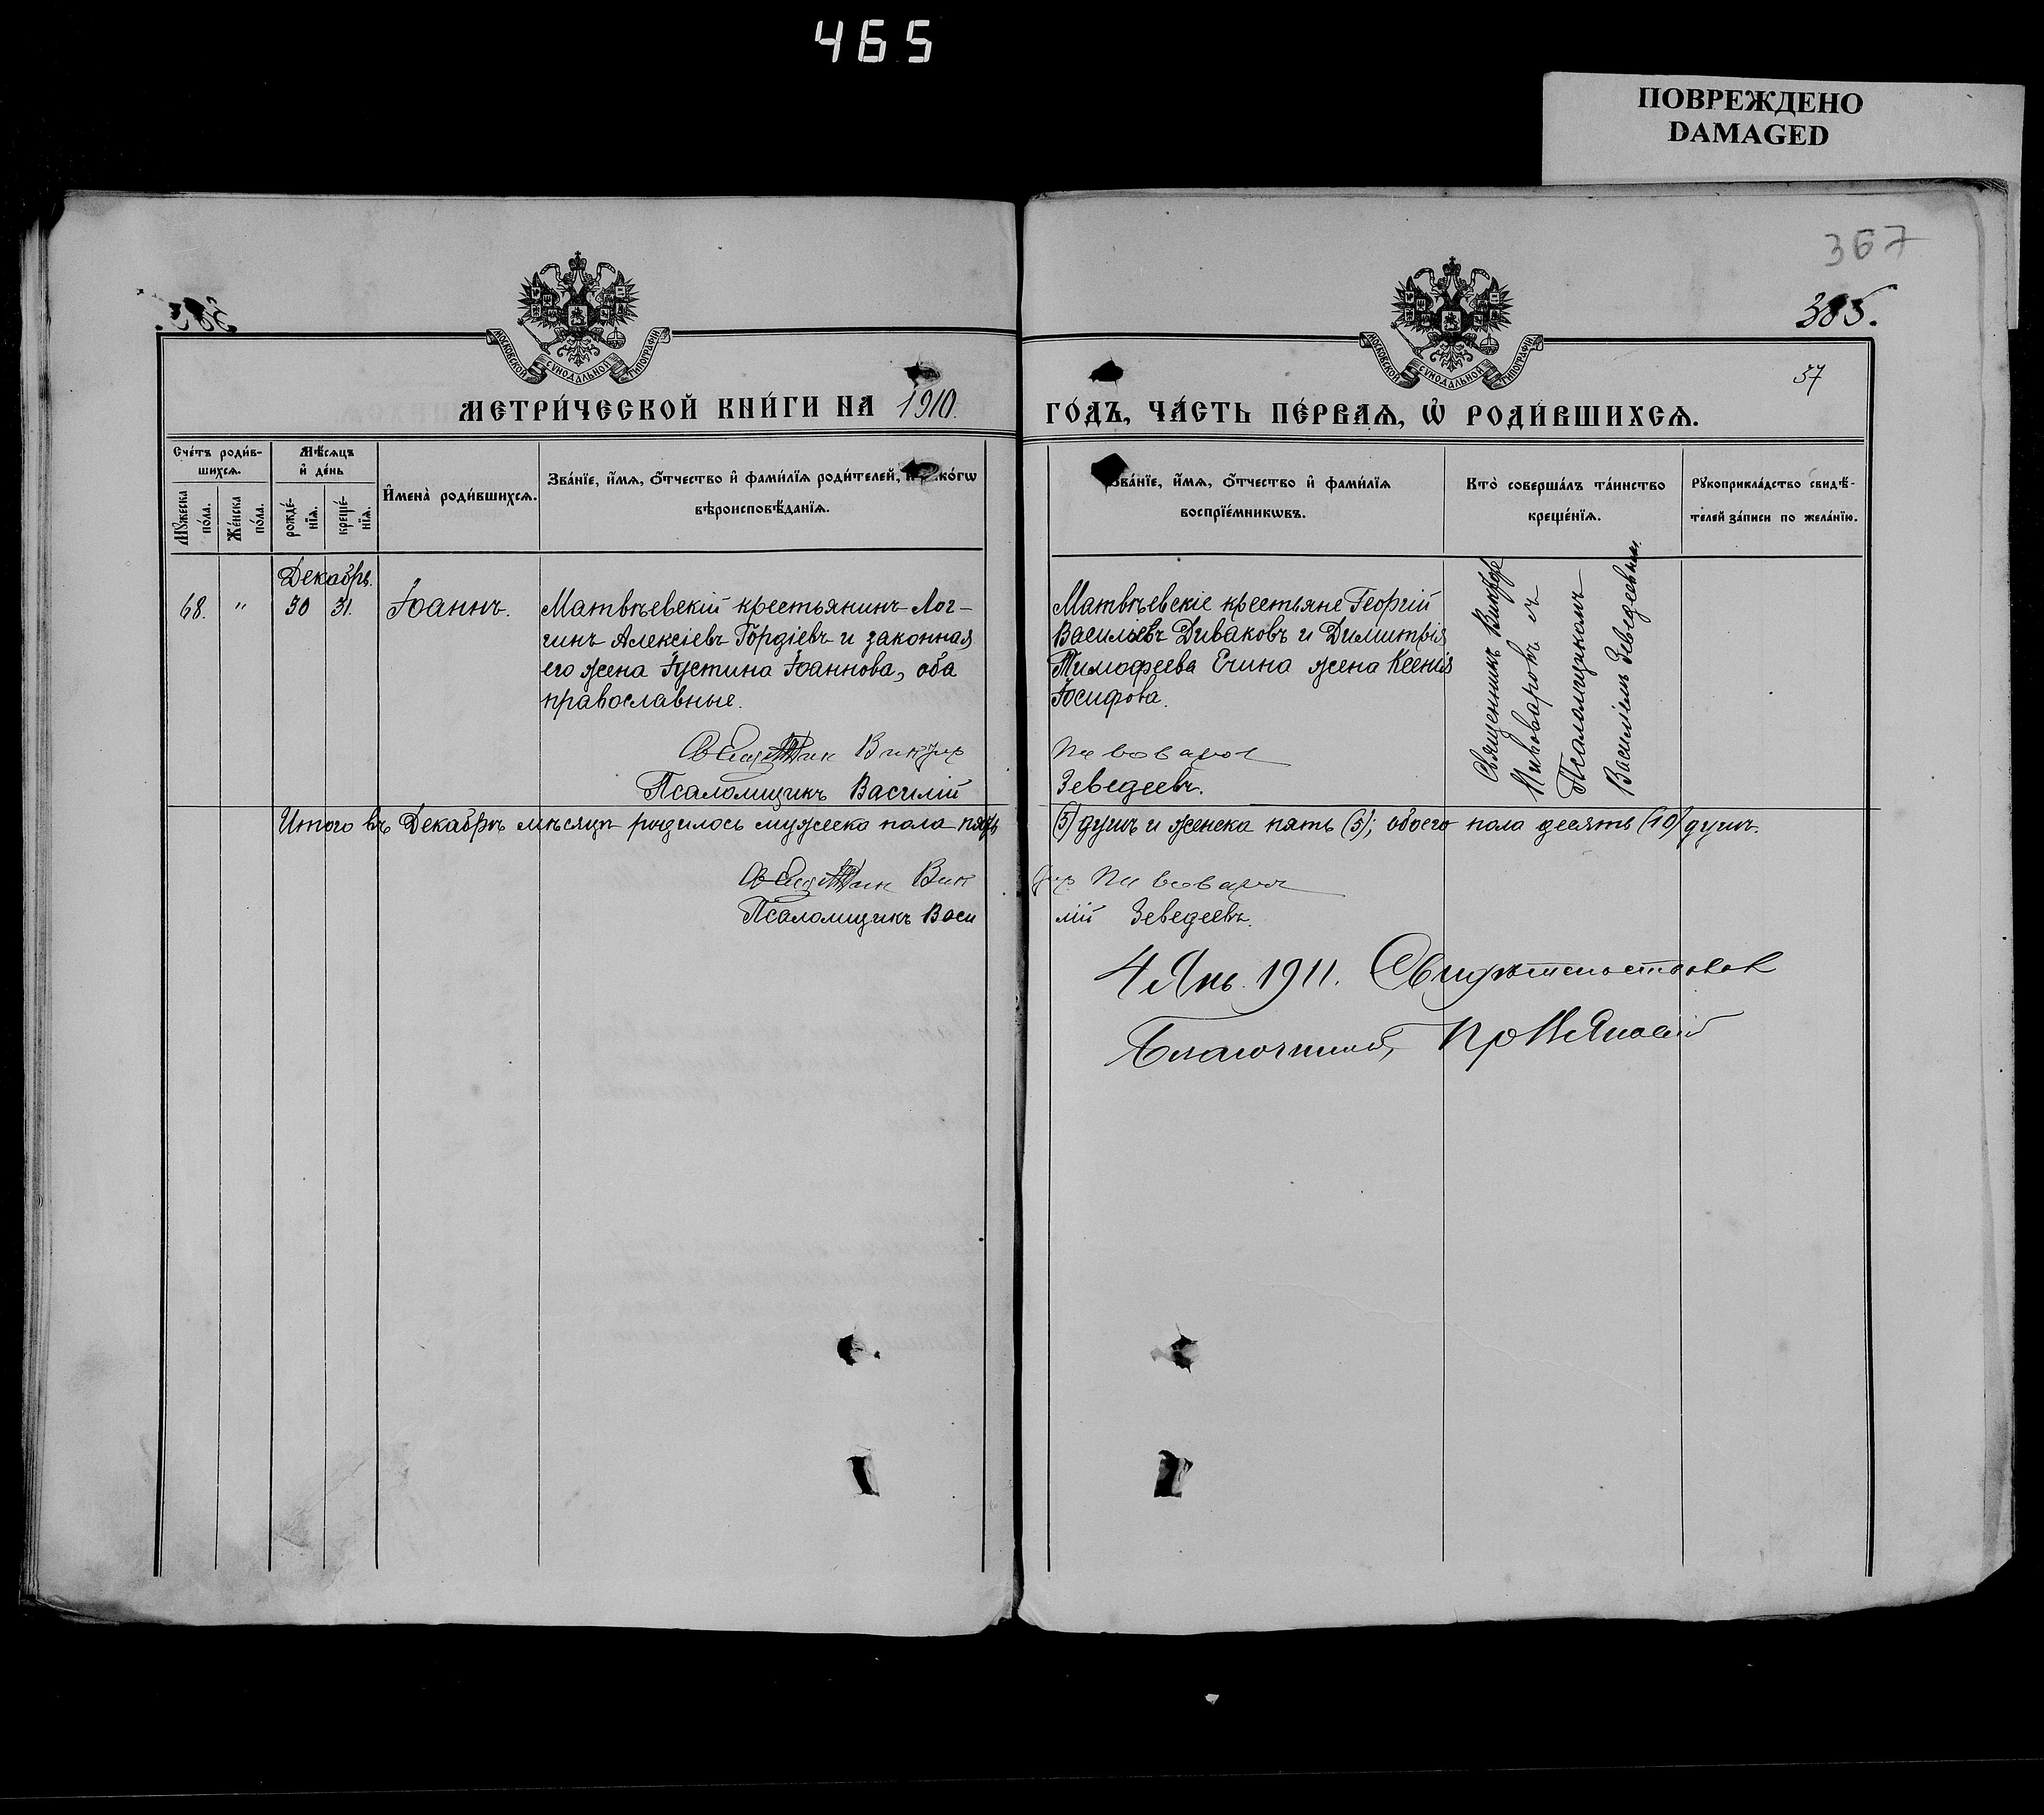 465
ПОВРЕЖДЕНО
DAMAGED
367
385.
37
МОСКОВСКОЙ СѴНОДАЛЬНОЙ ТИПОГРАФІИ
МОСКОВСКОЙ СѴНОДАЛЬНОЙ ТИПОГРАФІИ
МЕТРИ́ЧЕСКОЙ КНИ́ГИ НА 1910.
ГО́ДЪ, ЧА́СТЬ ПЕ́РВАѦ, Ѡ҆ РОДИ́ВШИХСѦ.
Сче́тъ роди́в-
шихсѧ.
Мꙋ́жеска по́ла.
Же́нска по́ла.
Мѣ́сѧцъ
и҆ де́нь
рожде́-нїѧ.
креще́-нїѧ.
И҆мена̀ роди́вшихсѧ.
Зва́нїе, и҆́мѧ, ѻ҆́тчество и҆ фами́лїѧ роди́телей, и҆ ко́гѡ
вѣроисповѣ́данїѧ.
Зва́нїе, и҆́мѧ, ѻ҆́тчество и҆ фами́лїѧ
воспрїе́мникѡвъ.
Кто̀ соверша́лъ та́инство
креще́нїѧ.
Рꙋкоприкла́дство свидѣ́-
телей за́писи по жела́нїю.
Декабрь.
68. " 30 31. Іоаннъ.
Матвѣевскій крестьянинъ Лог-
гинъ Алексіевъ Гордіевъ и законная
его жена Іустина Іоаннова, оба
православные.
Матвѣевскіе крестьяне Георгій
Васильевъ Диваковъ и Димитрія
Тимофеева Ечина жена Ксенія
Іосифова.
Священникъ Викторъ
Пивоваровъ съ
Псаломщикомъ
Василіемъ Зеведеевымъ.
Священник Виктор Пивоваров
Псаломщикъ Василій Зеведеевъ.
Итого въ Декабрѣ мѣсяцѣ родилось мужеска пола пять (5) душъ и женска пять (5); обоего пола десять (10) душъ.
Священник Виктор Пивоваров
Псаломщикъ Василій Зеведеевъ.
4 Янв. 1911. Свидѣтельствовал
Благочинный,